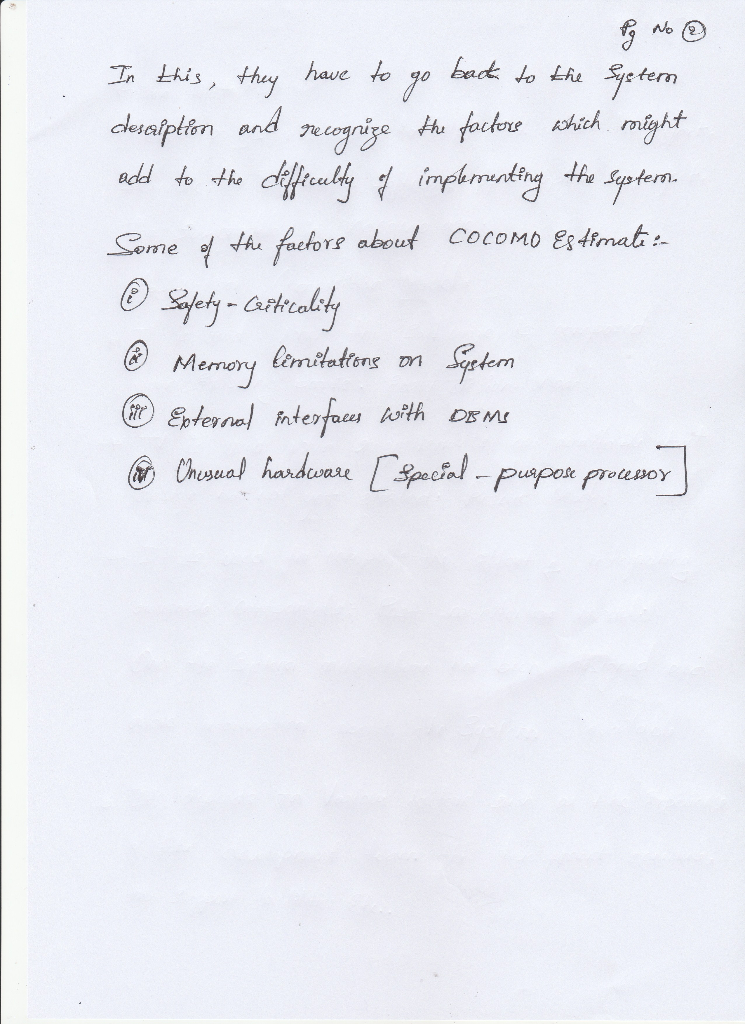 Pg No 2
In this, they have to go back to the System
description and recognize the factors which might
add to the difficulty of implementing the system.
Some of the factors about COCOMO Estimate:-
i Safety-Criticality
ii Memory limitations on System
iii External interfaces with DBMS
iv Unusual hardware [Special-purpose processor]